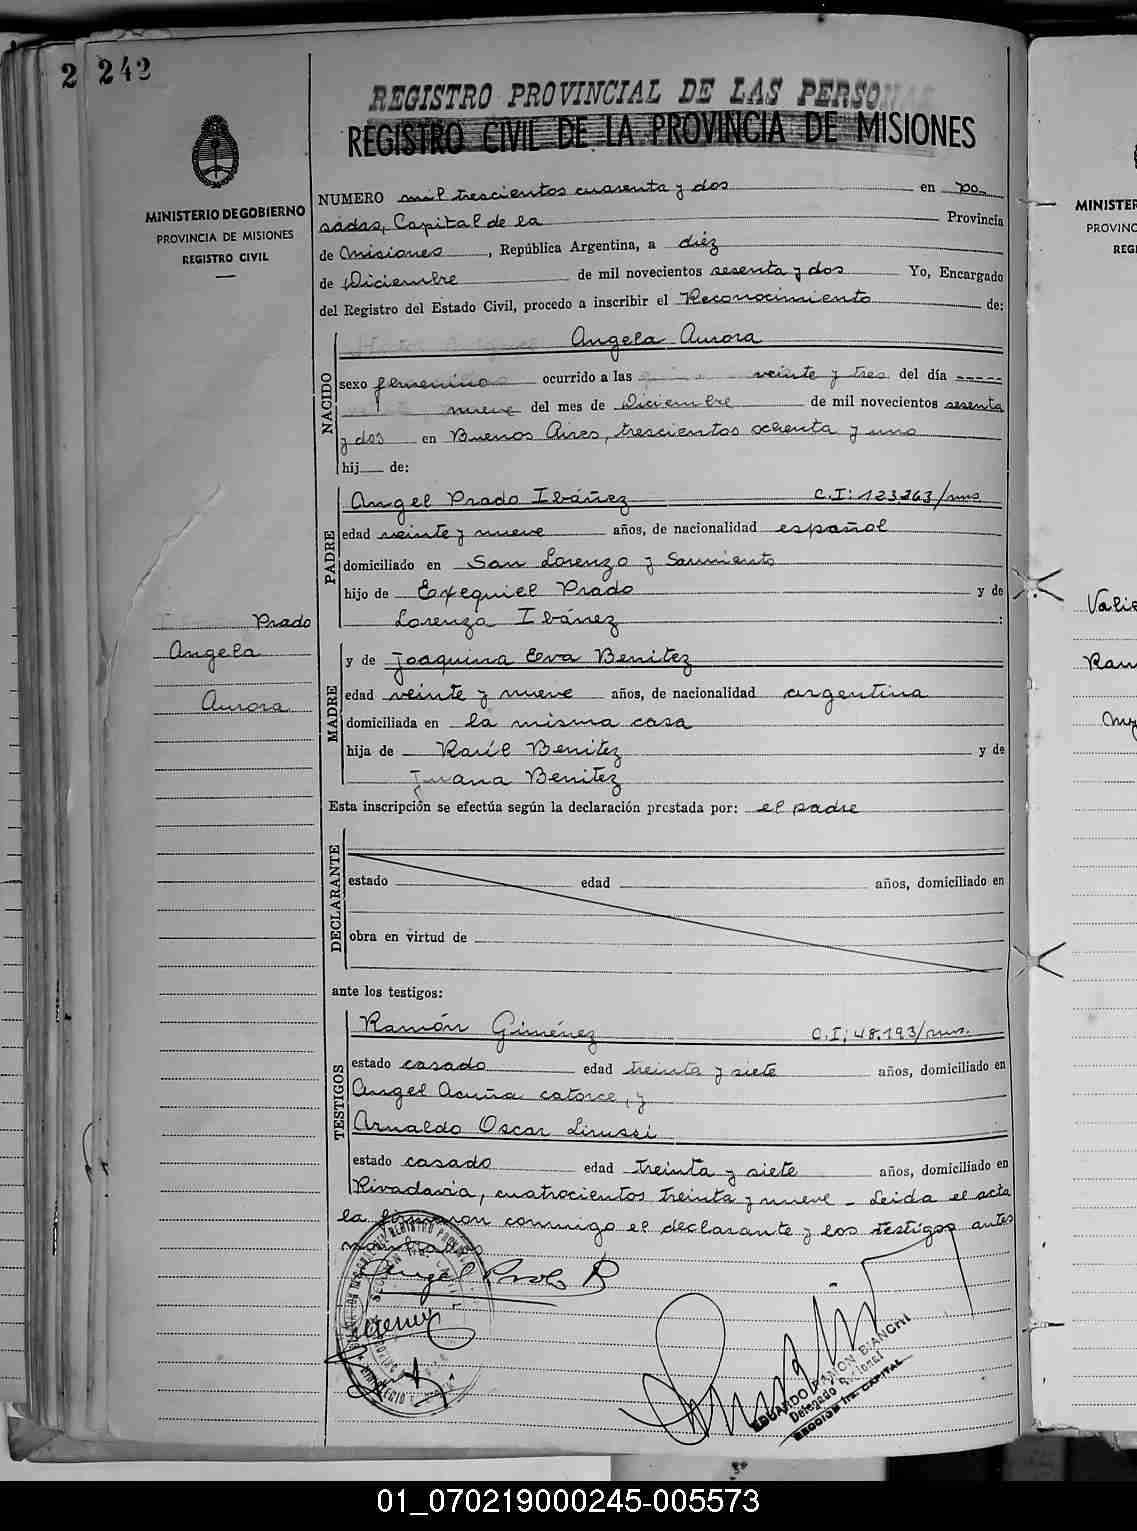 2 242
REGISTRO PROVINCIAL DE LAS PERSONAS
REGISTRO CIVIL DE LA PROVINCIA DE MISIONES
MINISTERIO DE GOBIERNO
PROVINCIA DE MISIONES
REGISTRO CIVIL
NUMERO mil trescientos cuarenta y dos en Po-
sadas, Capital de la Provincia
de Misiones, República Argentina, a diez
de Diciembre de mil novecientos sesenta y dos Yo, Encargado
del Registro del Estado Civil, procedo a inscribir el Reconocimiento de:
NACIDO
Angela Aurora
sexo femenino ocurrido a las veinte y tres del día -----
nueve del mes de Diciembre de mil novecientos sesenta
y dos en Buenos Aires, trescientos ochenta y uno
hij de:
PADRE
Angel Prado Ibáñez C.I: 123.263/mns
edad veinte y nueve años, de nacionalidad español
domiciliado en San Lorenzo y Sarmiento
hijo de Exequiel Prado y de
Lorenza Ibánez :
Prado
Angela
Aurora
MADRE
y de Joaquina Eva Benitez
edad veinte y nueve años, de nacionalidad argentina
domiciliada en la misma casa
hija de Raúl Benitez y de
Juana Benitez
Esta inscripción se efectúa según la declaración prestada por: el padre
DECLARANTE
estado edad años, domiciliado en
obra en virtud de
ante los testigos:
TESTIGOS
Ramón Giménez C.I: 48.193/mns.
estado casado edad treinta y siete años, domiciliado en
Angel Acuña catorce, y
Arnaldo Oscar Lirussi
estado casado edad treinta y siete años, domiciliado en
Rivadavia, cuatrocientos treinta y nueve - Leida el acta
la firmaron conmigo el declarante y los testigos antes
Angel Prado
EDUARDO RAMON BIANCHI
Delegado Regional
SECCION 1ra. CAPITAL
MINISTER
PROVINC
REG
Valie
Ram
01_070219000245-005573